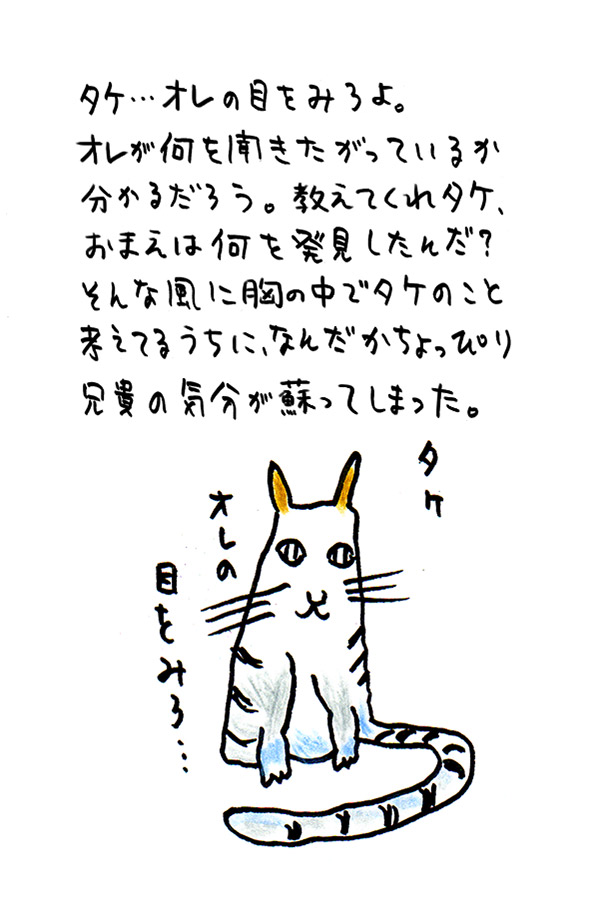 タケ…オレの目をみろよ。
オレが何を聞きたがっているか
分かるだろう。教えてくれタケ、
おまえは何を発見したんだ？
そんな風に胸の中でタケのこと
考えてるうちに、なんだかちょっぴり
兄貴の気分が蘇ってしまった。
タケ
オレの
目をみろ…